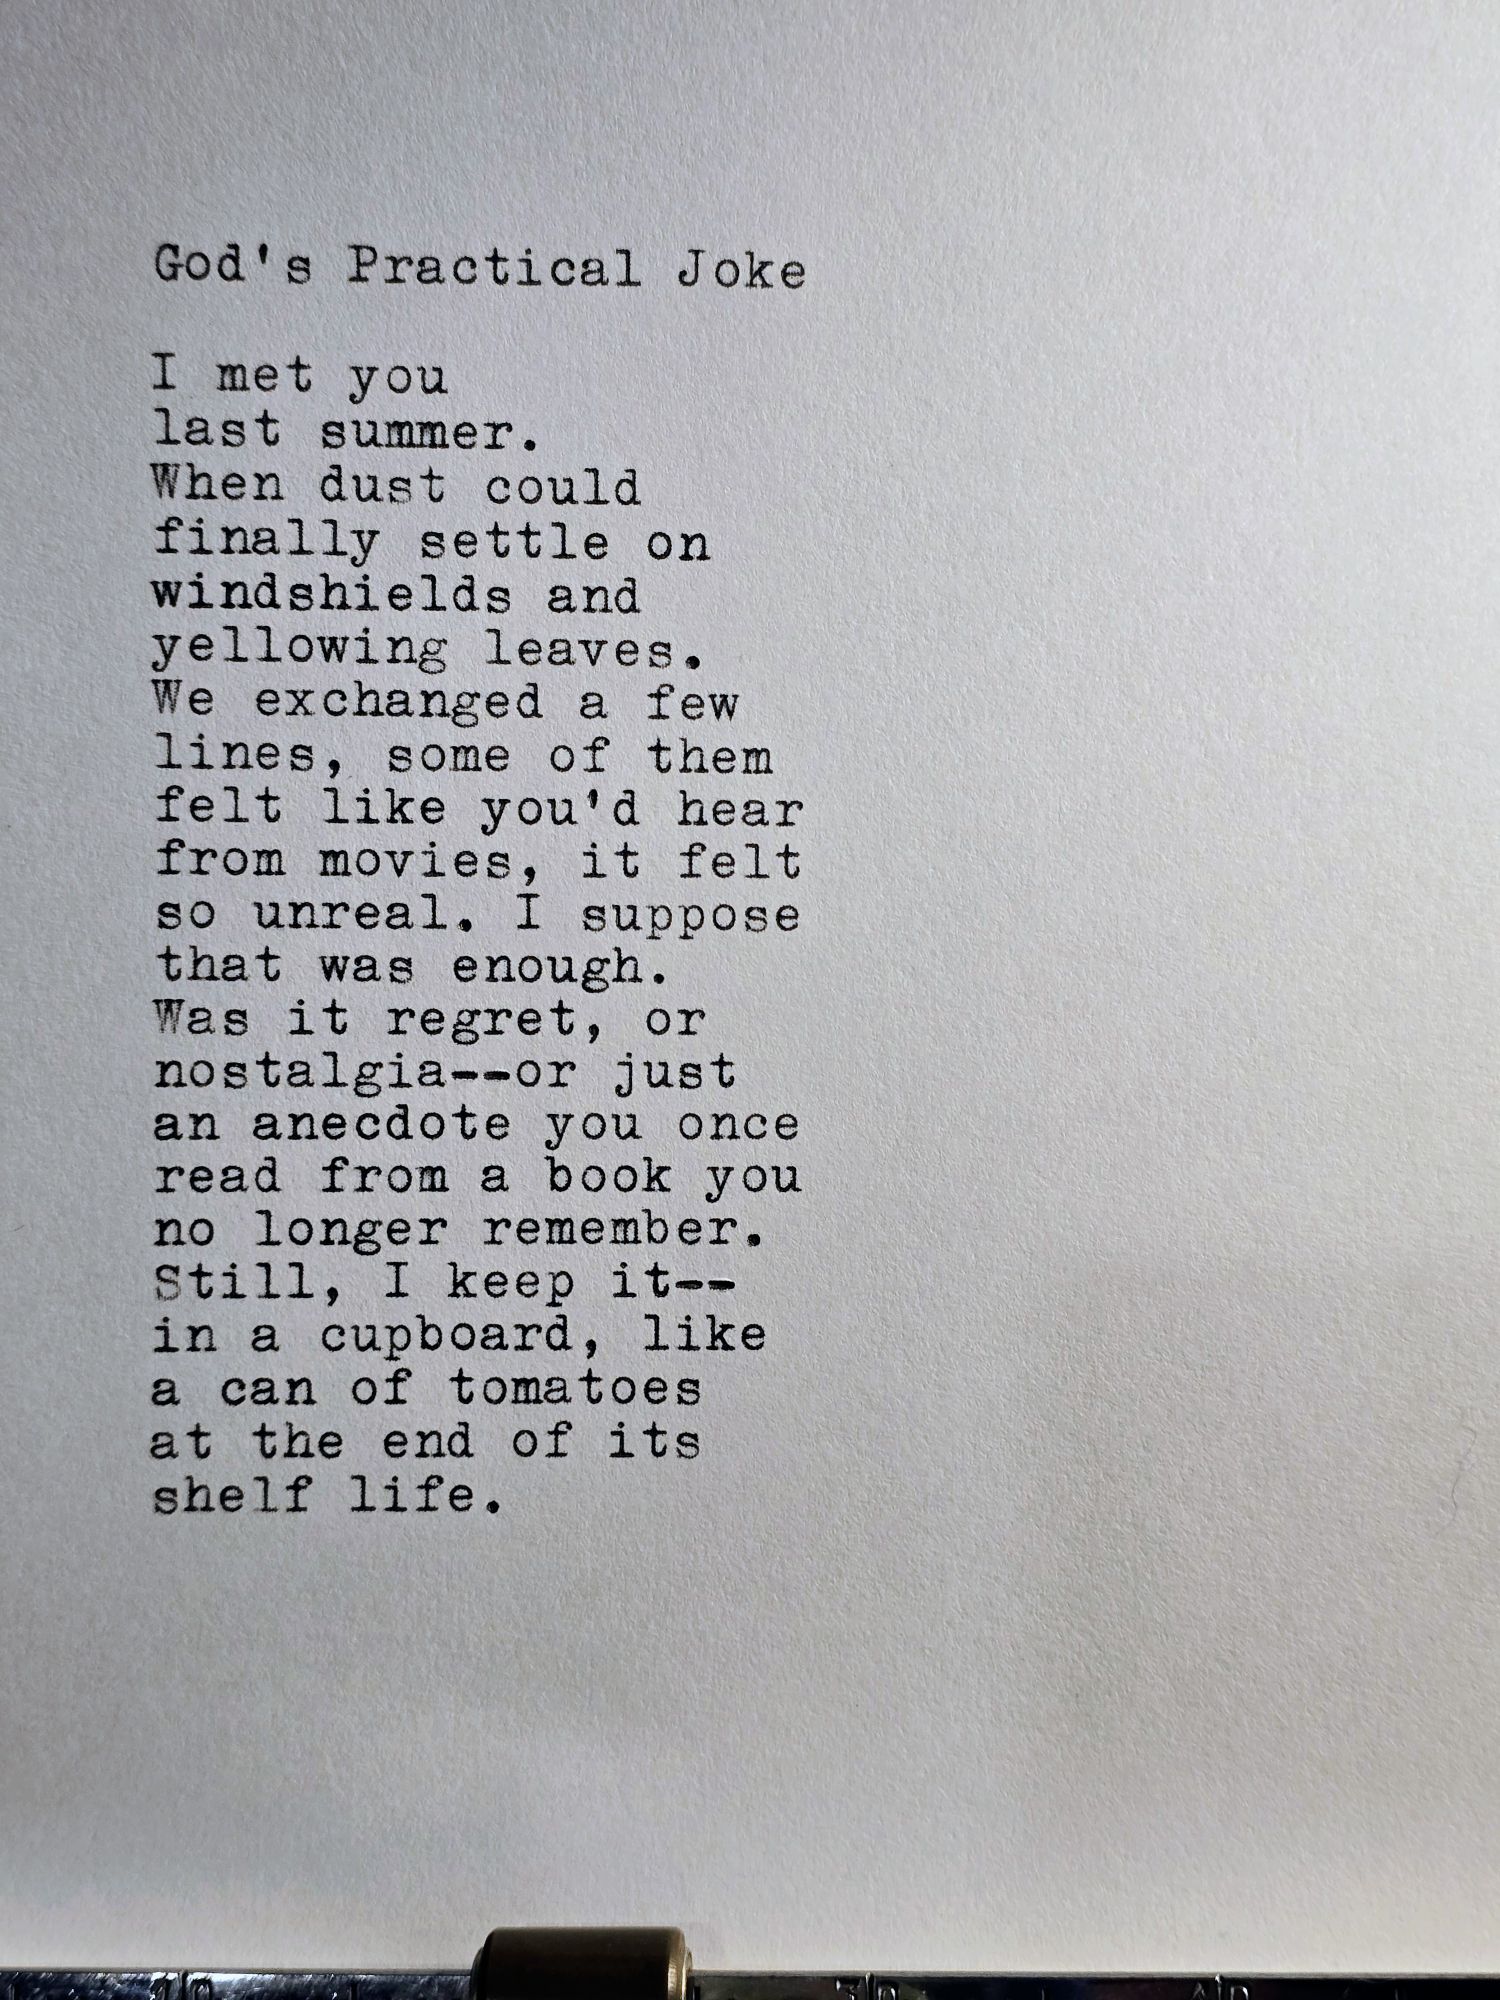 God's Practical Joke
I met you
last summer.
When dust could
finally settle on
windshields and
yellowing leaves.
We exchanged a few
lines, some of them
felt like you'd hear
from movies, it felt
so unreal. I suppose
that was enough.
Was it regret, or
nostalgia--or just
an anecdote you once
read from a book you
no longer remember.
Still, I keep it--
in a cupboard, like
a can of tomatoes
at the end of its
shelf life.